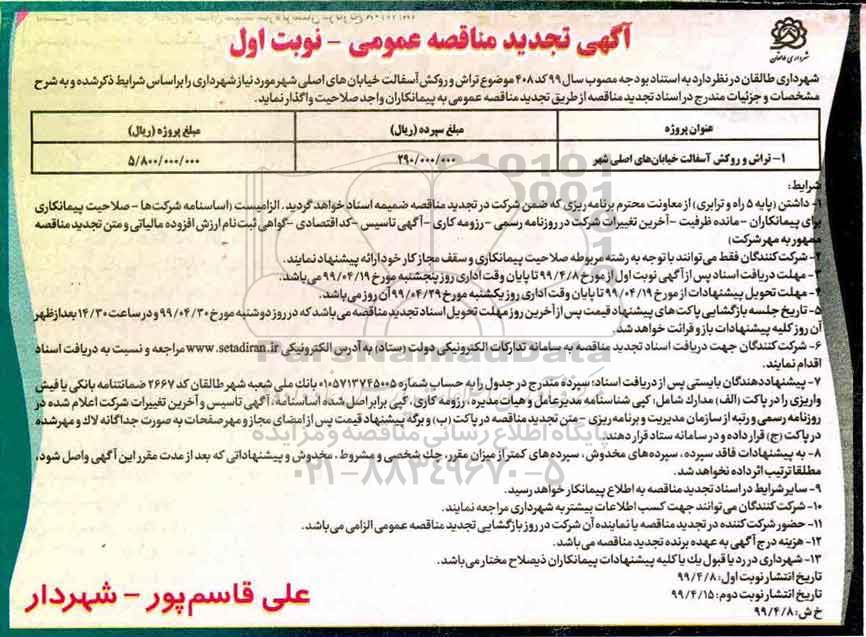 آگهی تجدید مناقصه عمومی - نوبت اول
شهرداری طالقان
شهرداری طالقان در نظر دارد به استناد بودجه مصوب سال ۹۹ کد ۴۰۸ موضوع تراش و روکش آسفالت خیابان های اصلی شهر مورد نیاز شهرداری را براساس شرایط ذکر شده و به شرح
مشخصات و جزئیات مندرج در اسناد تجدید مناقصه از طریق تجدید مناقصه عمومی به پیمانکاران واجد صلاحیت واگذار نماید.
عنوان پروژه
مبلغ سپرده (ریال)
مبلغ پروژه (ریال)
۱- تراش و روکش آسفالت خیابان‌های اصلی شهر
۲۹۰/۰۰۰/۰۰۰
۵/۸۰۰/۰۰۰/۰۰۰
شرایط:
۱- داشتن (پایه ۵ راه و ترابری) از معاونت محترم برنامه ریزی که ضمن شرکت در تجدید مناقصه ضمیمه اسناد خواهد گردید. الزامیست (اساسنامه شرکت‌ها - صلاحیت پیمانکاری
برای پیمانکاران - مانده ظرفیت - آخرین تغییرات شرکت در روزنامه رسمی - رزومه کاری - آگهی تاسیس - کد اقتصادی - گواهی ثبت نام ارزش افزوده مالیاتی و متن تجدید مناقصه
ممهور به مهر شرکت)
۲- شرکت کنندگان فقط می‌توانند با توجه به رشته مربوطه صلاحیت پیمانکاری و سقف مجاز کار خود ارائه پیشنهاد نمایند.
۳- مهلت دریافت اسناد پس از آگهی نوبت اول از مورخ ۹۹/۴/۸ تا پایان وقت اداری روز پنجشنبه مورخ ۹۹/۰۴/۱۹ می باشد.
۴- مهلت تحویل پیشنهادات از مورخ ۹۹/۰۴/۱۹ تا پایان وقت اداری روز یکشنبه مورخ ۹۹/۰۴/۲۹ آن روز می‌باشد.
۵- تاریخ جلسه بازگشایی پاکت های پیشنهاد قیمت پس از آخرین روز مهلت تحویل اسناد تجدید مناقصه می‌باشد که در روز دوشنبه مورخ ۹۹/۰۴/۳۰ و در ساعت ۱۴/۳۰ بعدازظهر
آن روز کلیه پیشنهادات باز و قرائت خواهد شد.
۶- شرکت کنندگان جهت دریافت اسناد تجدید مناقصه به سامانه تدارکات الکترونیکی دولت (ستاد) به آدرس الکترونیکی www.setadiran.ir مراجعه و نسبت به دریافت اسناد
اقدام نمایند.
۷- پیشنهاددهندگان بایستی پس از دریافت اسناد؛ سپرده مندرج در جدول را به حساب شماره ۰۱۰۵۷۱۳۷۴۵۰۰۵ بانک ملی شعبه شهر طالقان کد ۲۶۶۷ ضمانتنامه بانکی یا فیش
واریزی را در پاکت (الف) مدارک شامل: کپی شناسنامه مدیرعامل و هیات مدیره، رزومه کاری، کپی برابر اصل شده اساسنامه، آگهی تاسیس و آخرین تغییرات شرکت اعلام شده در
روزنامه رسمی و رتبه از سازمان مدیریت و برنامه ریزی - متن تجدید مناقصه در پاکت (ب) و برگه پیشنهاد قیمت پس از امضای مجاز و مهر صفحات به صورت جداگانه لاک و مهر شده
در پاکت (ج) قرار داده و در سامانه ستاد قرار دهند.
۸- به پیشنهادات فاقد سپرده، سپرده‌های مخدوش، سپرده‌های کمتر از میزان مقرر، چک شخصی و مشروط، مخدوش و پیشنهاداتی که بعد از مدت مقرر این آگهی واصل شود،
مطلقا ترتیب اثر داده نخواهد شد.
۹- سایر شرایط در اسناد تجدید مناقصه به اطلاع پیمانکار خواهد رسید.
۱۰- شرکت کنندگان می‌توانند جهت کسب اطلاعات بیشتر به شهرداری مراجعه نمایند.
۱۱- حضور شرکت کننده در تجدید مناقصه یا نماینده آن شرکت در روز بازگشایی تجدید مناقصه عمومی الزامی می‌باشد.
۱۲- هزینه درج آگهی به عهده برنده تجدید مناقصه می‌باشد.
۱۳- شهرداری در رد یا قبول یک یا کلیه پیشنهادات پیمانکاران ذیصلاح مختار می‌باشد.
تاریخ انتشار نوبت اول: ۹۹/۴/۸
تاریخ انتشار نوبت دوم: ۹۹/۴/۱۵
خ ش: ۹۹/۴/۸
علی قاسم‌پور - شهردار
پایگاه اطلاع رسانی مناقصه و مزایده
۰۲۱-۸۸۳۴۹۶۷۰-۵